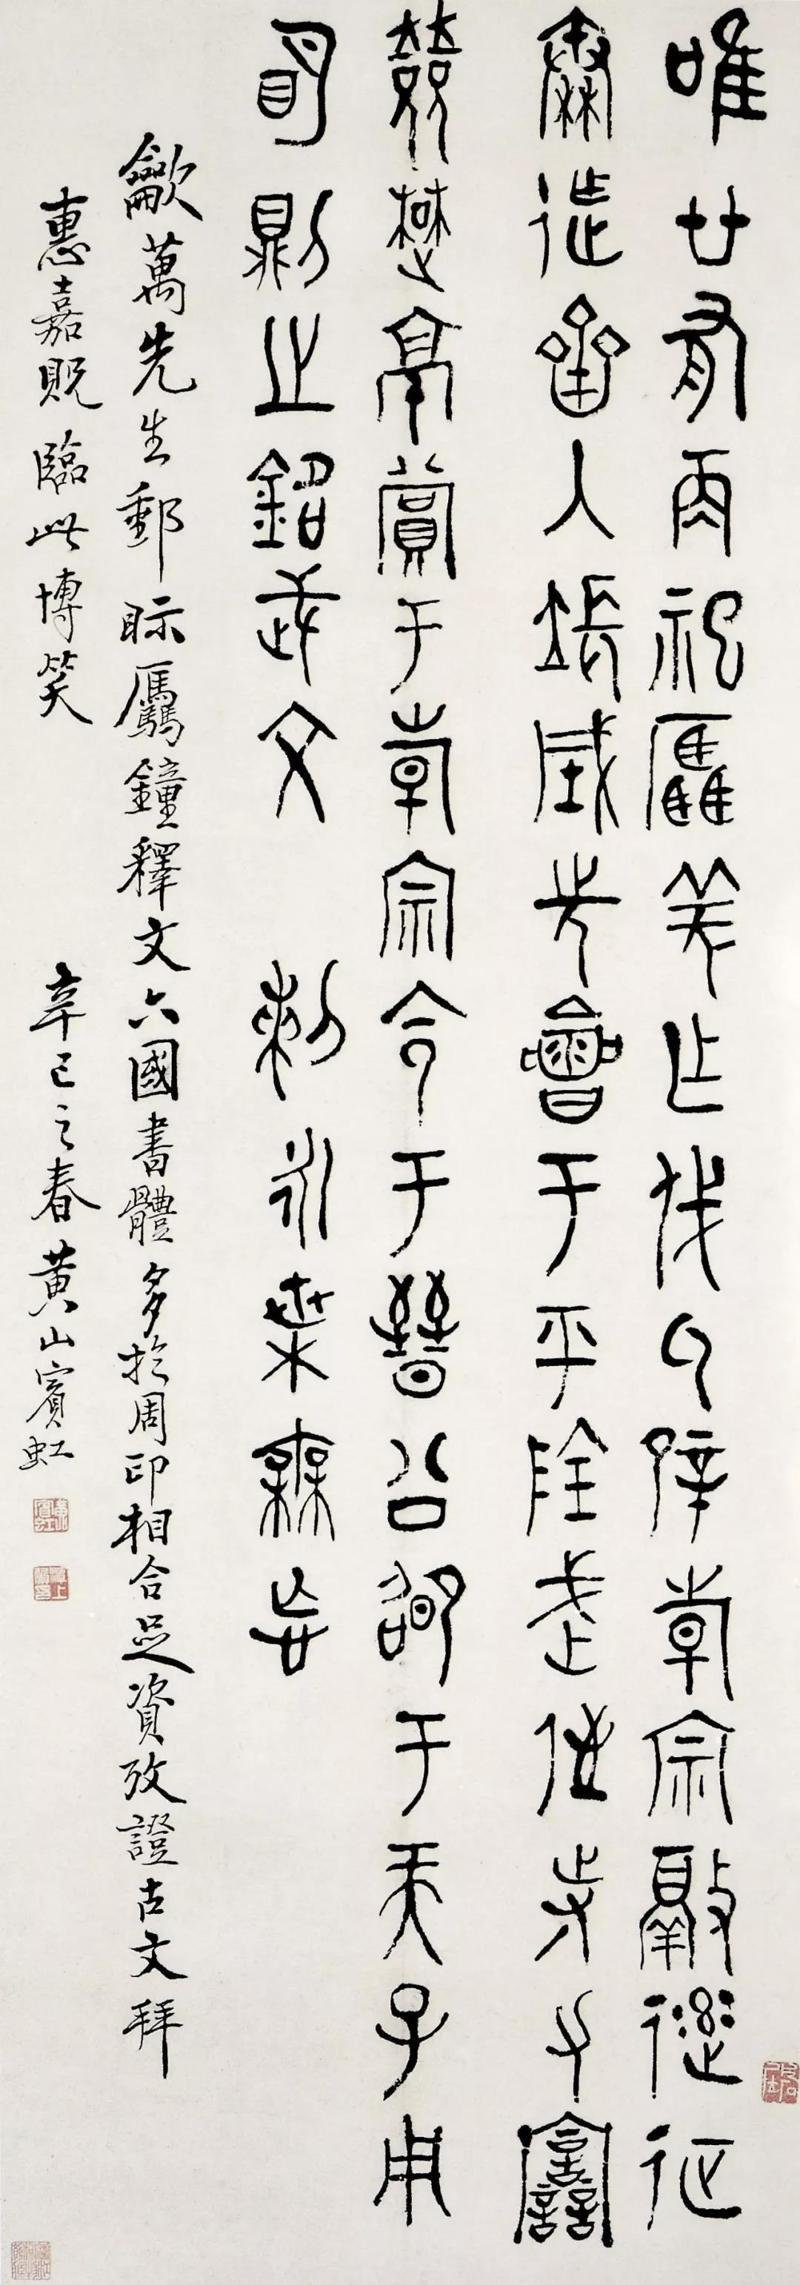 唯廿又再祀驫羌乍伐氒辟倝宗敲征
秦迮齊人張城先會于平陰武侄寺力
楚京賞于倝宗令于晉公卲于天子用
明則之銘武文　剌永枼無忘
龡萬先生郵眎驫鐘釋文六國書體多於周印相合足資攷證古文拜
惠嘉貺臨此博笑　辛巳之春黃山賓虹